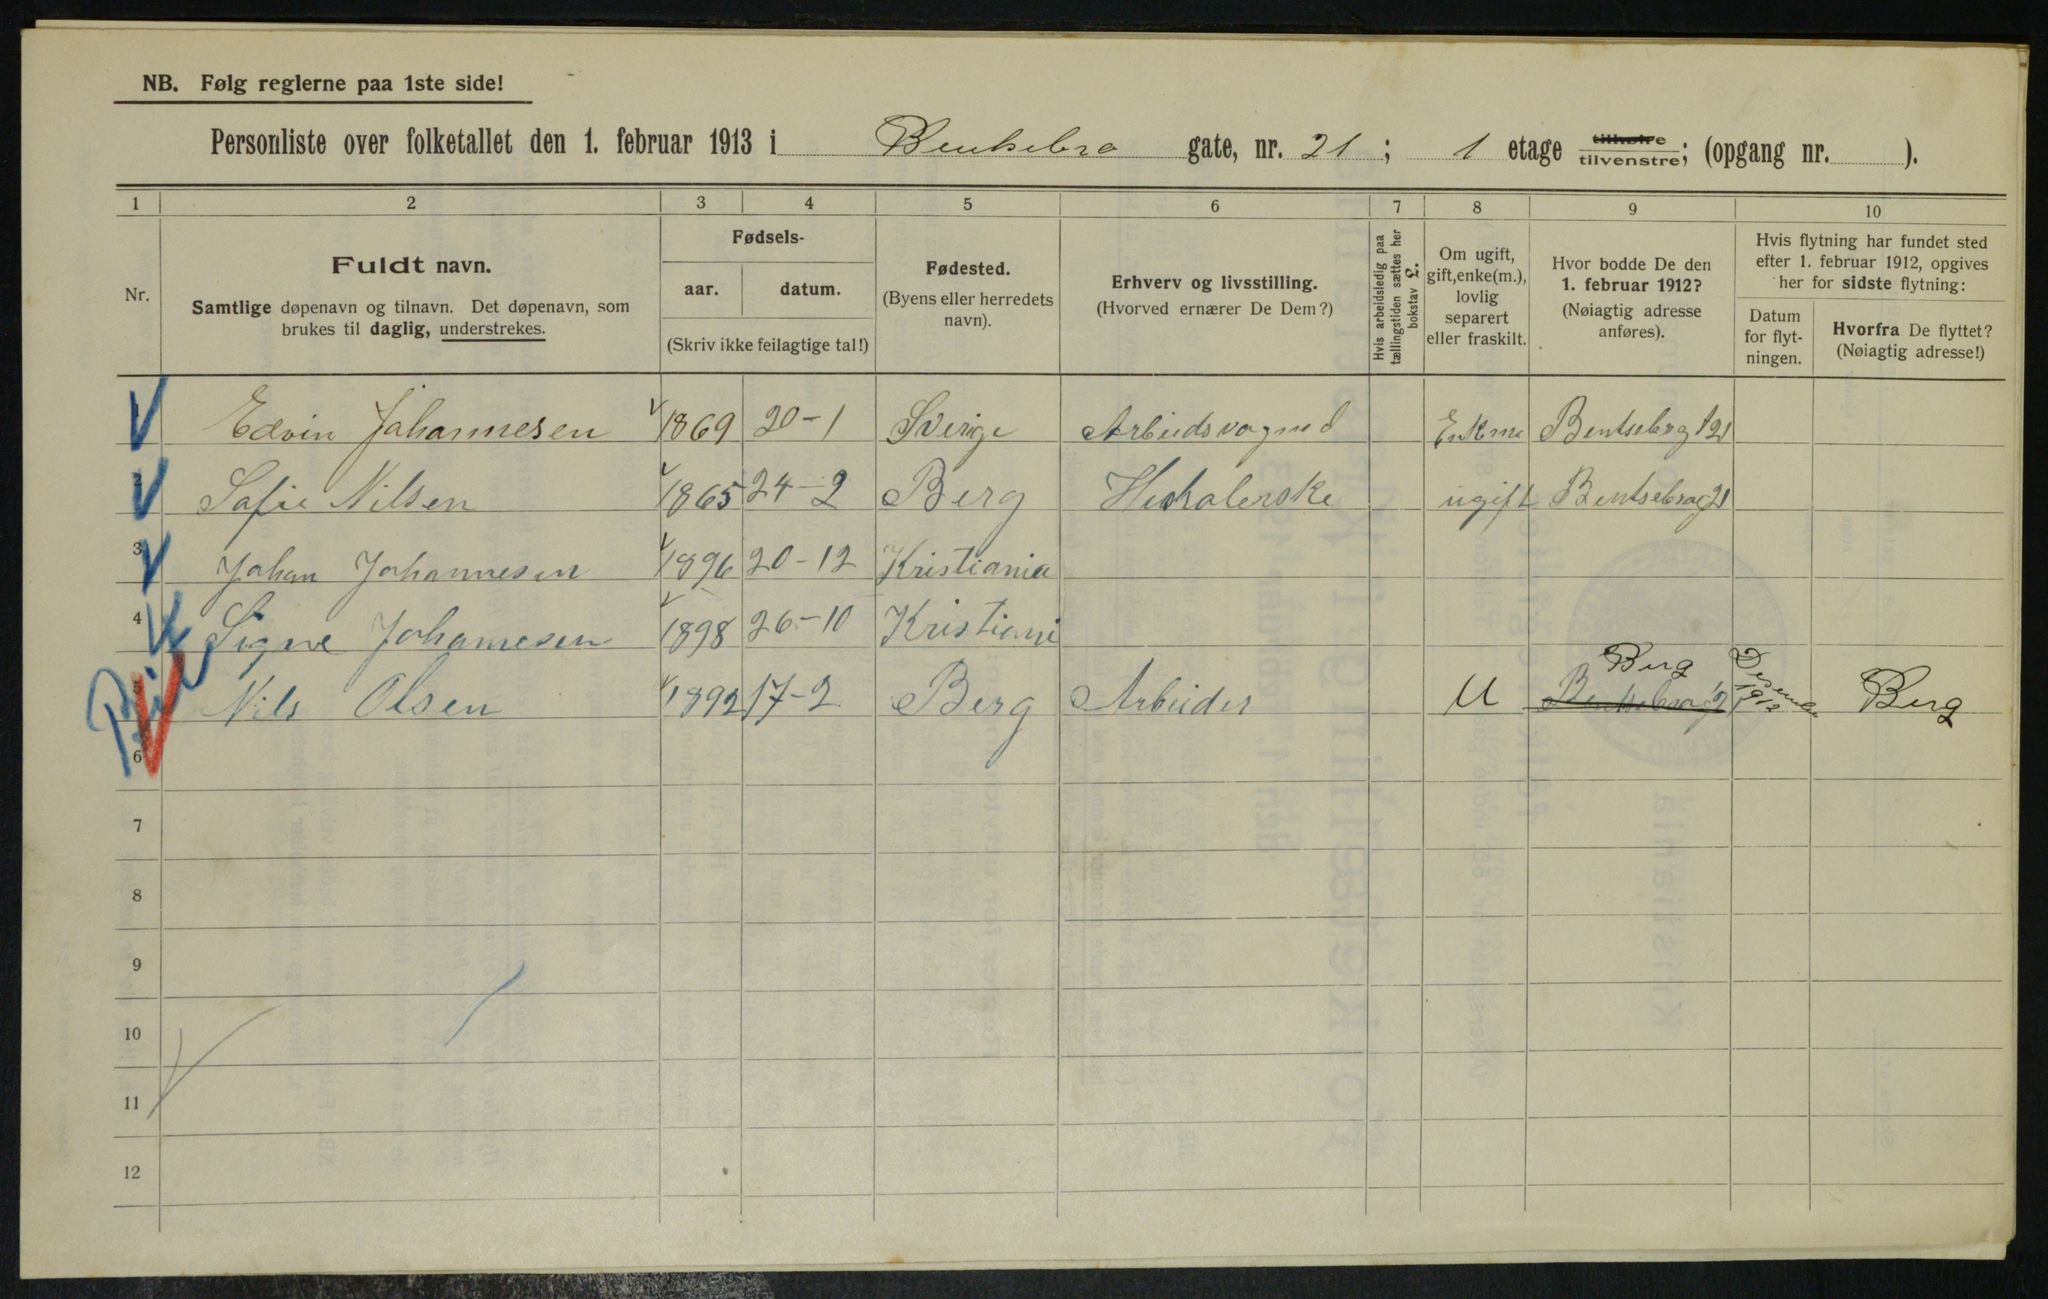 NB. Følg reglerne paa 1ste side!
Personliste over folketallet den 1. februar 1913 i Bentsebro gate, nr. 21; 1 etage tilhøire tilvenstre; (opgang nr. ).
1 2 3 4 5 6 7 8 9 10
Nr.
Fuldt navn.
Samtlige døpenavn og tilnavn. Det døpenavn, som
brukes til daglig, understrekes.
Fødsels-
aar. datum.
(Skriv ikke feilagtige tal!)
Fødested.
(Byens eller herredets
navn).
Erhverv og livsstilling.
(Hvorved ernærer De Dem?)
Hvis arbeidsledig paa
tællingstiden sættes her
bokstav L.
Om ugift,
gift, enke(m.),
lovlig
separert
eller fraskilt.
Hvor bodde De den
1. februar 1912?
(Nøiagtig adresse
anføres).
Hvis flytning har fundet sted
efter 1. februar 1912, opgives
her for sidste flytning:
Datum
for flyt-
ningen.
Hvorfra De flyttet?
(Nøiagtig adresse!)
1 Edvin Johannesen 1869 20-1 Sverige Arbeidsvogned Enkm Bentsebrg 21
2 Sofie Nilsen 1865 24-2 Berg Husholerske ugift Bentsebrog 21
3 Johan Johannesen 1896 20-12 Kristiania
4 Signe Johannesen 1898 26-10 Kristiani
5 Nils Olsen 1892 17-2 Berg Arbeider U Bentsebrog 21 Berg Desember 1912 Berg
6
7
8
9
10
11
12